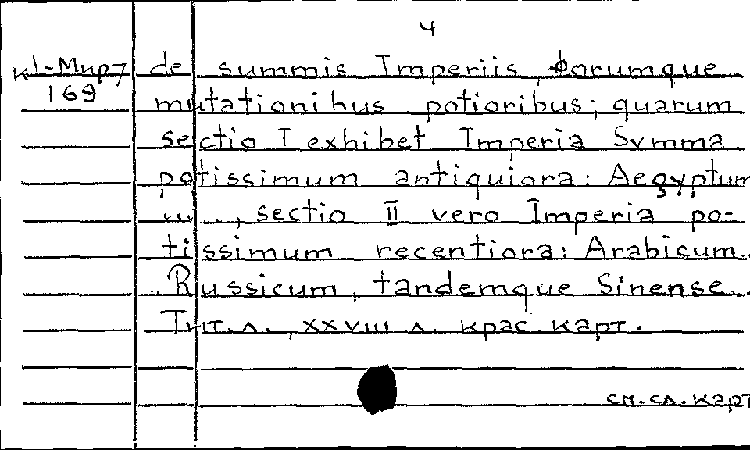 4
кІ-Мир7 de summis Imperiis, eorumque
169 mutationibus potioribus; quarum
sectio I exhibet Imperia Summa
potissimum antiquiora: Aegyptum
..., sectio II vero Imperia po-
tissimum recentiora: Arabicum..
Russicum, tandemque Sinense..
Тит. л., XXVIII л. крас. карт.
см. сл. карт